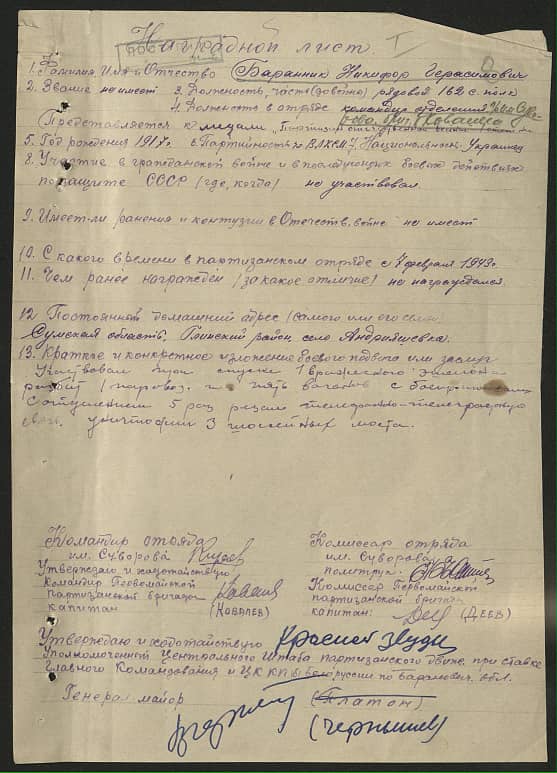 Наградной лист. I
1. Фамилия Имя и Отчество Баранник Никифор Герасимович
2. Звание не имеет 3. Должность, часть (до войны) рядовой 162 с. полк
4. Должность в отряде командир отделения
Представляется к медали "Партизан отечественной войны
5. Год рождения 1917 г. 6. Партийность ВЛКСМ 7. Национальность. Украинец
8. Участие в гражданской войне и в последующих боевых действиях
по защите СССР (где, когда) не участвовал.
9. Имеет-ли ранения и контузии в Отечеств. войне не имеет
10. С какого времени в партизанском отряде с 7 февраля 1943 г.
11. Чем ранее награжден (за какое отличие) не награждался.
12 Постоянный домашний адрес (самого или его семьи
Сумская область, Глинский район, село Андрияшевка.
13. Краткое и конкретное изложение боевого подвига или заслуг
Участвовал при спуске 1 вражеского эшелона
разбит 1 паровоз. и пять вагонов с
5 раз резал телефонно-телеграфную
связь. уничтожил 3 шоссейных моста.
Командир отряда
им. Суворова
Комиссар отряда
им. Суворова
политрук.
Утверждаю и ходатайствую
Командир Первомайской
партизанской бригады
капитан (Ковалев)
Комиссар Первомайской
партизанской бригады
капитан: (Деев)
Утверждаю и ходотайствую Красной звезды
Уполномоченный Центрального Штаба партизанского движ. при ставке
Главного Командования и ЦК КП(б) Белоруссии по Баранович. обл.
Генерал майор (Платон)
(Чернышев)